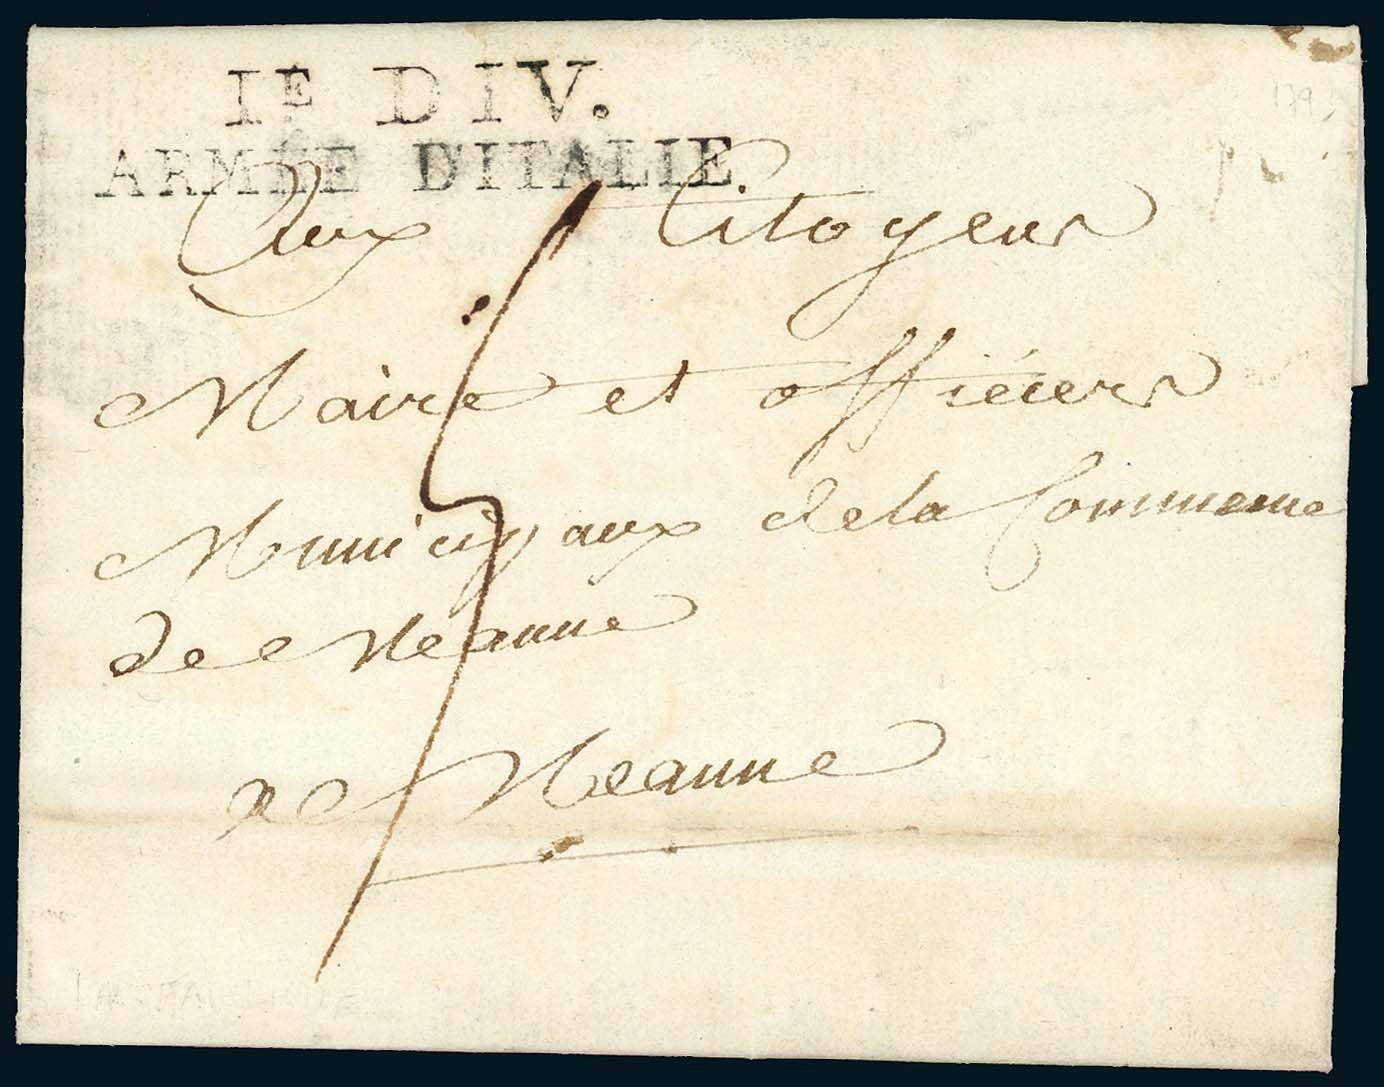 1E DIV.
ARMÉE D'ITALIE
Aux Citoyens
Maire et officiers
Municipaux de la Commune
de Meanne
a Meanne